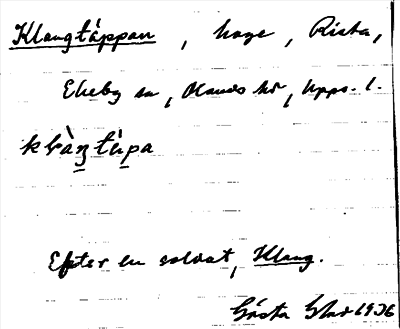 Klangtäppan, hage, Rista,
Ekeby sn, Olands hd, Upps. l.
klàŋtɛ̀pa
Efter en soldat, Klang.
Gösta 1936